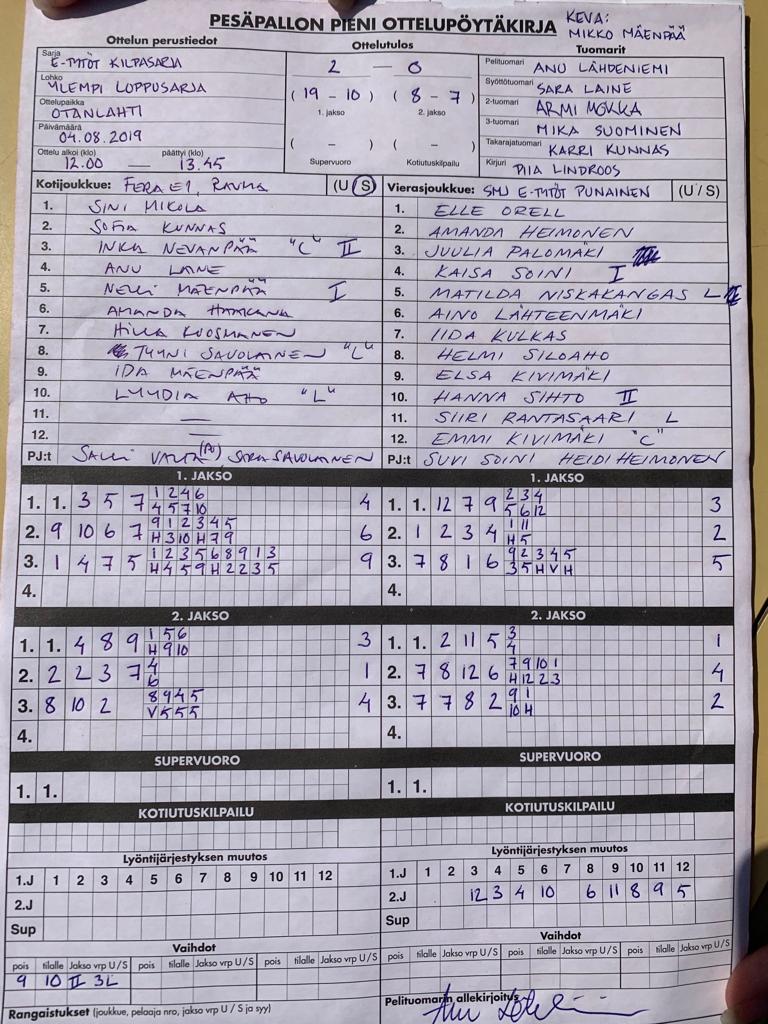 PESÄPALLON PIENI OTTELUPÖYTÄKIRJA
KEVA:
MIKKO MÄENPÄÄ
Ottelun perustiedot
Sarja E-TYTÖT KILPASARJA
Lohko YLEMPI LOPPUSARJA
Ottelupaikka OTANLAHTI
Päivämäärä 04.08.2019
Ottelu alkoi (klo) 12.00 — päättyi (klo) 13.45
Ottelutulos
2 — 0
( 19 - 10 ) ( 8 - 7 )
1. jakso 2. jakso
( - ) ( - )
Supervuoro Kotiutuskilpailu
Tuomarit
Pelituomari ANU LÄHDENIEMI
Syöttötuomari SARA LAINE
2-tuomari ARMI
3-tuomari MIKA SUOMINEN
Takarajatuomari KARRI KUNNAS
Kirjuri PIIA LINDROOS
Kotijoukkue: FERA E1, RAUMA (U/S)
1. SINI MIKOLA
2. SOFIA KUNNAS
3. INKA NEVANPÄÄ "C" II
4. ANU LAINE
5. NELLI MÄENPÄÄ I
6. AMANDA
7. HILLA KOOSMANEN
8. TYYNI SAVOLAINEN "L"
9. IDA MÄENPÄÄ
10. LYYDIA AHO "L"
11. —
12. —
PJ:t SALLI (PO) SARA SAVOLAINEN
Vierasjoukkue: SMJ E-TYTÖT PUNAINEN (U/S)
1. ELLE ORELL
2. AMANDA HEIMONEN
3. JUULIA PALOMÄKI
4. KAISA SOINI I
5. MATILDA NISKAKANGAS L
6. AINO LÄHTEENMÄKI
7. IIDA KULKAS
8. HELMI SILOAHO
9. ELSA KIVIMÄKI
10. HANNA SIHTO II
11. SIIRI RANTASAARI L
12. EMMI KIVIMÄKI "C"
PJ:t SUVI SOINI HEIDI HEIMONEN
1. JAKSO
1. 1. 3 5 7 1 2 4 6 4
4 5 7 10
2. 9 10 6 7 9 1 2 3 4 5 6
H 3 10 H 7 9
3. 1 4 7 5 1 2 3 5 6 8 9 1 3 9
H 4 5 9 H 2 2 3 5
4.
1. JAKSO
1. 1. 12 7 9 2 3 4 3
5 6 12
2. 1 2 3 4 1 11 2
H 5
3. 7 8 1 6 9 2 3 4 5 5
3 5 H V H
4.
2. JAKSO
1. 1. 4 8 9 1 5 6 3
H 9 10
2. 2 2 3 7 4 1
6
3. 8 10 2 8 9 4 5 4
V 5 5 5
4.
2. JAKSO
1. 1. 2 11 5 3 1
4
2. 7 8 12 6 7 9 10 1 4
H 12 2 3
3. 7 7 8 2 9 1 2
10 H
4.
SUPERVUORO
1. 1.
SUPERVUORO
1. 1.
KOTIUTUSKILPAILU
KOTIUTUSKILPAILU
Lyöntijärjestyksen muutos
1.J 1 2 3 4 5 6 7 8 9 10 11 12
2.J
Sup
Lyöntijärjestyksen muutos
1.J 1 2 3 4 5 6 7 8 9 10 11 12
2.J 12 3 4 10 6 11 8 9 5
Sup
Vaihdot
pois tilalle Jakso vrp U/S pois tilalle Jakso vrp U/S pois tilalle Jakso vrp U/S
9 10 II 3L
Vaihdot
pois tilalle Jakso vrp U/S pois tilalle Jakso vrp U/S pois tilalle Jakso vrp U/S
Rangaistukset (joukkue, pelaaja nro, jakso vrp U/S ja syy)
Pelituomarin allekirjoitus